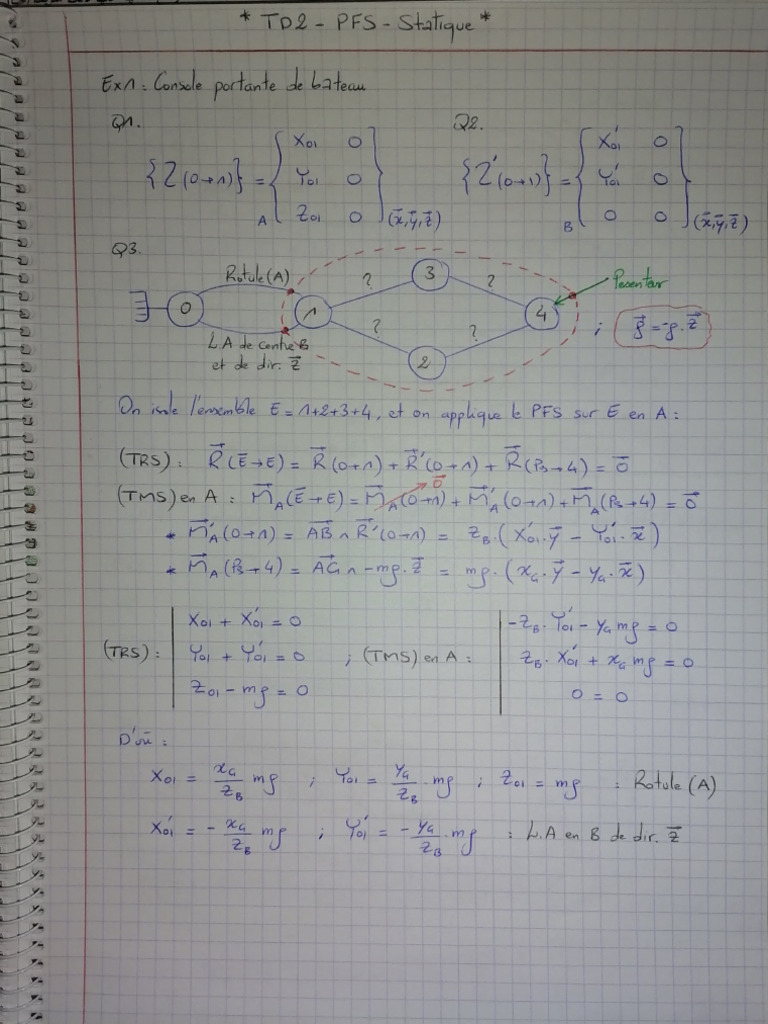 * TD2 - PFS - Statique *
Ex1 : Console portante de bateau
Q1. Q2.
{Z(0→1)} = A { X01 0 ; Y01 0 ; Z01 0 } (x⃗,y⃗,z⃗) {Z'(0→1)} = B { X'01 0 ; Y'01 0 ; 0 0 } (x⃗,y⃗,z⃗)
Q3.
Rotule (A) ? 3 ? Pesanteur
0 1 4 ; g⃗ = -g.z⃗
L.A de centre B ? 2 ?
et de dir. z⃗
On isole l'ensemble E = 1+2+3+4, et on applique le PFS sur E en A :
(TRS) : R⃗(Ē→E) = R⃗(0→1) + R⃗'(0→1) + R⃗(Ps→4) = 0⃗
(TMS) en A : M⃗A(Ē→E) = M⃗A(0→1) + M⃗'A(0→1) + M⃗A(Ps→4) = 0⃗
0⃗
* M⃗'A(0→1) = AB⃗ ∧ R⃗'(0→1) = zB.(X'01.y⃗ - Y'01.x⃗)
* M⃗A(Ps→4) = AG⃗ ∧ -mg.z⃗ = mg.(xG.y⃗ - yG.x⃗)
X01 + X'01 = 0 -zB.Y'01 - yG mg = 0
(TRS) : Y01 + Y'01 = 0 ; (TMS) en A : zB.X'01 + xG mg = 0
Z01 - mg = 0 0 = 0
D'où :
X01 = xG/zB mg ; Y01 = yG/zB.mg ; Z01 = mg : Rotule (A)
X'01 = - xG/zB mg ; Y'01 = - yG/zB.mg : L.A en B de dir. z⃗